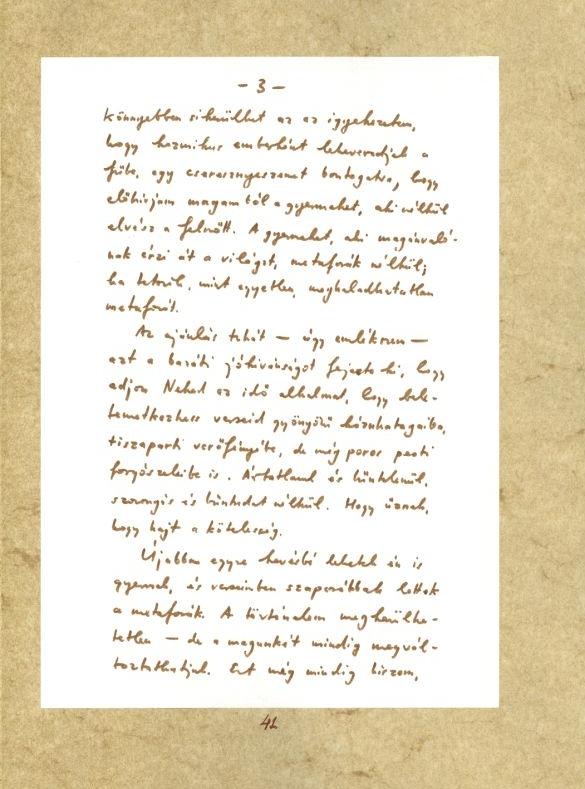 - 3 -
könnyebben sikerülhet az az igyekezetem,
hogy kozmikus emberként leheveredjek a
fűbe, egy cseresznyeszemet bontogatva, hogy
előhívjam magamból a gyermeket, aki nélkül
elvész a felnőtt. A gyermeket, aki magánvaló-
nak érzi át a világot, metaforák nélkül;
ha tetszik, mint egyetlen, meghaladhatatlan
metaforát.
Az ajánlás tehát — úgy emlékszem —
azt a baráti jókívánságot fejezte ki, hogy
adjon Neked az idő alkalmat, hogy bele-
temetkezhess verseid gyönyörű
tiszaparti verőfényébe, de még poros pesti
forgószeleibe is. Ártatlanul és bűntelenül,
szorongás és bűntudat nélkül. Hogy úznak,
hogy hajt a kötelesség.
Újabban egyre kevésbé lehetek én is
gyermek, és verseimben szaporábbak lettek
a metaforák. A történelem megkerülhe-
tetlen — de a magunkét mindig megvál-
toztathatjuk. Ezt még mindig hiszem,
41